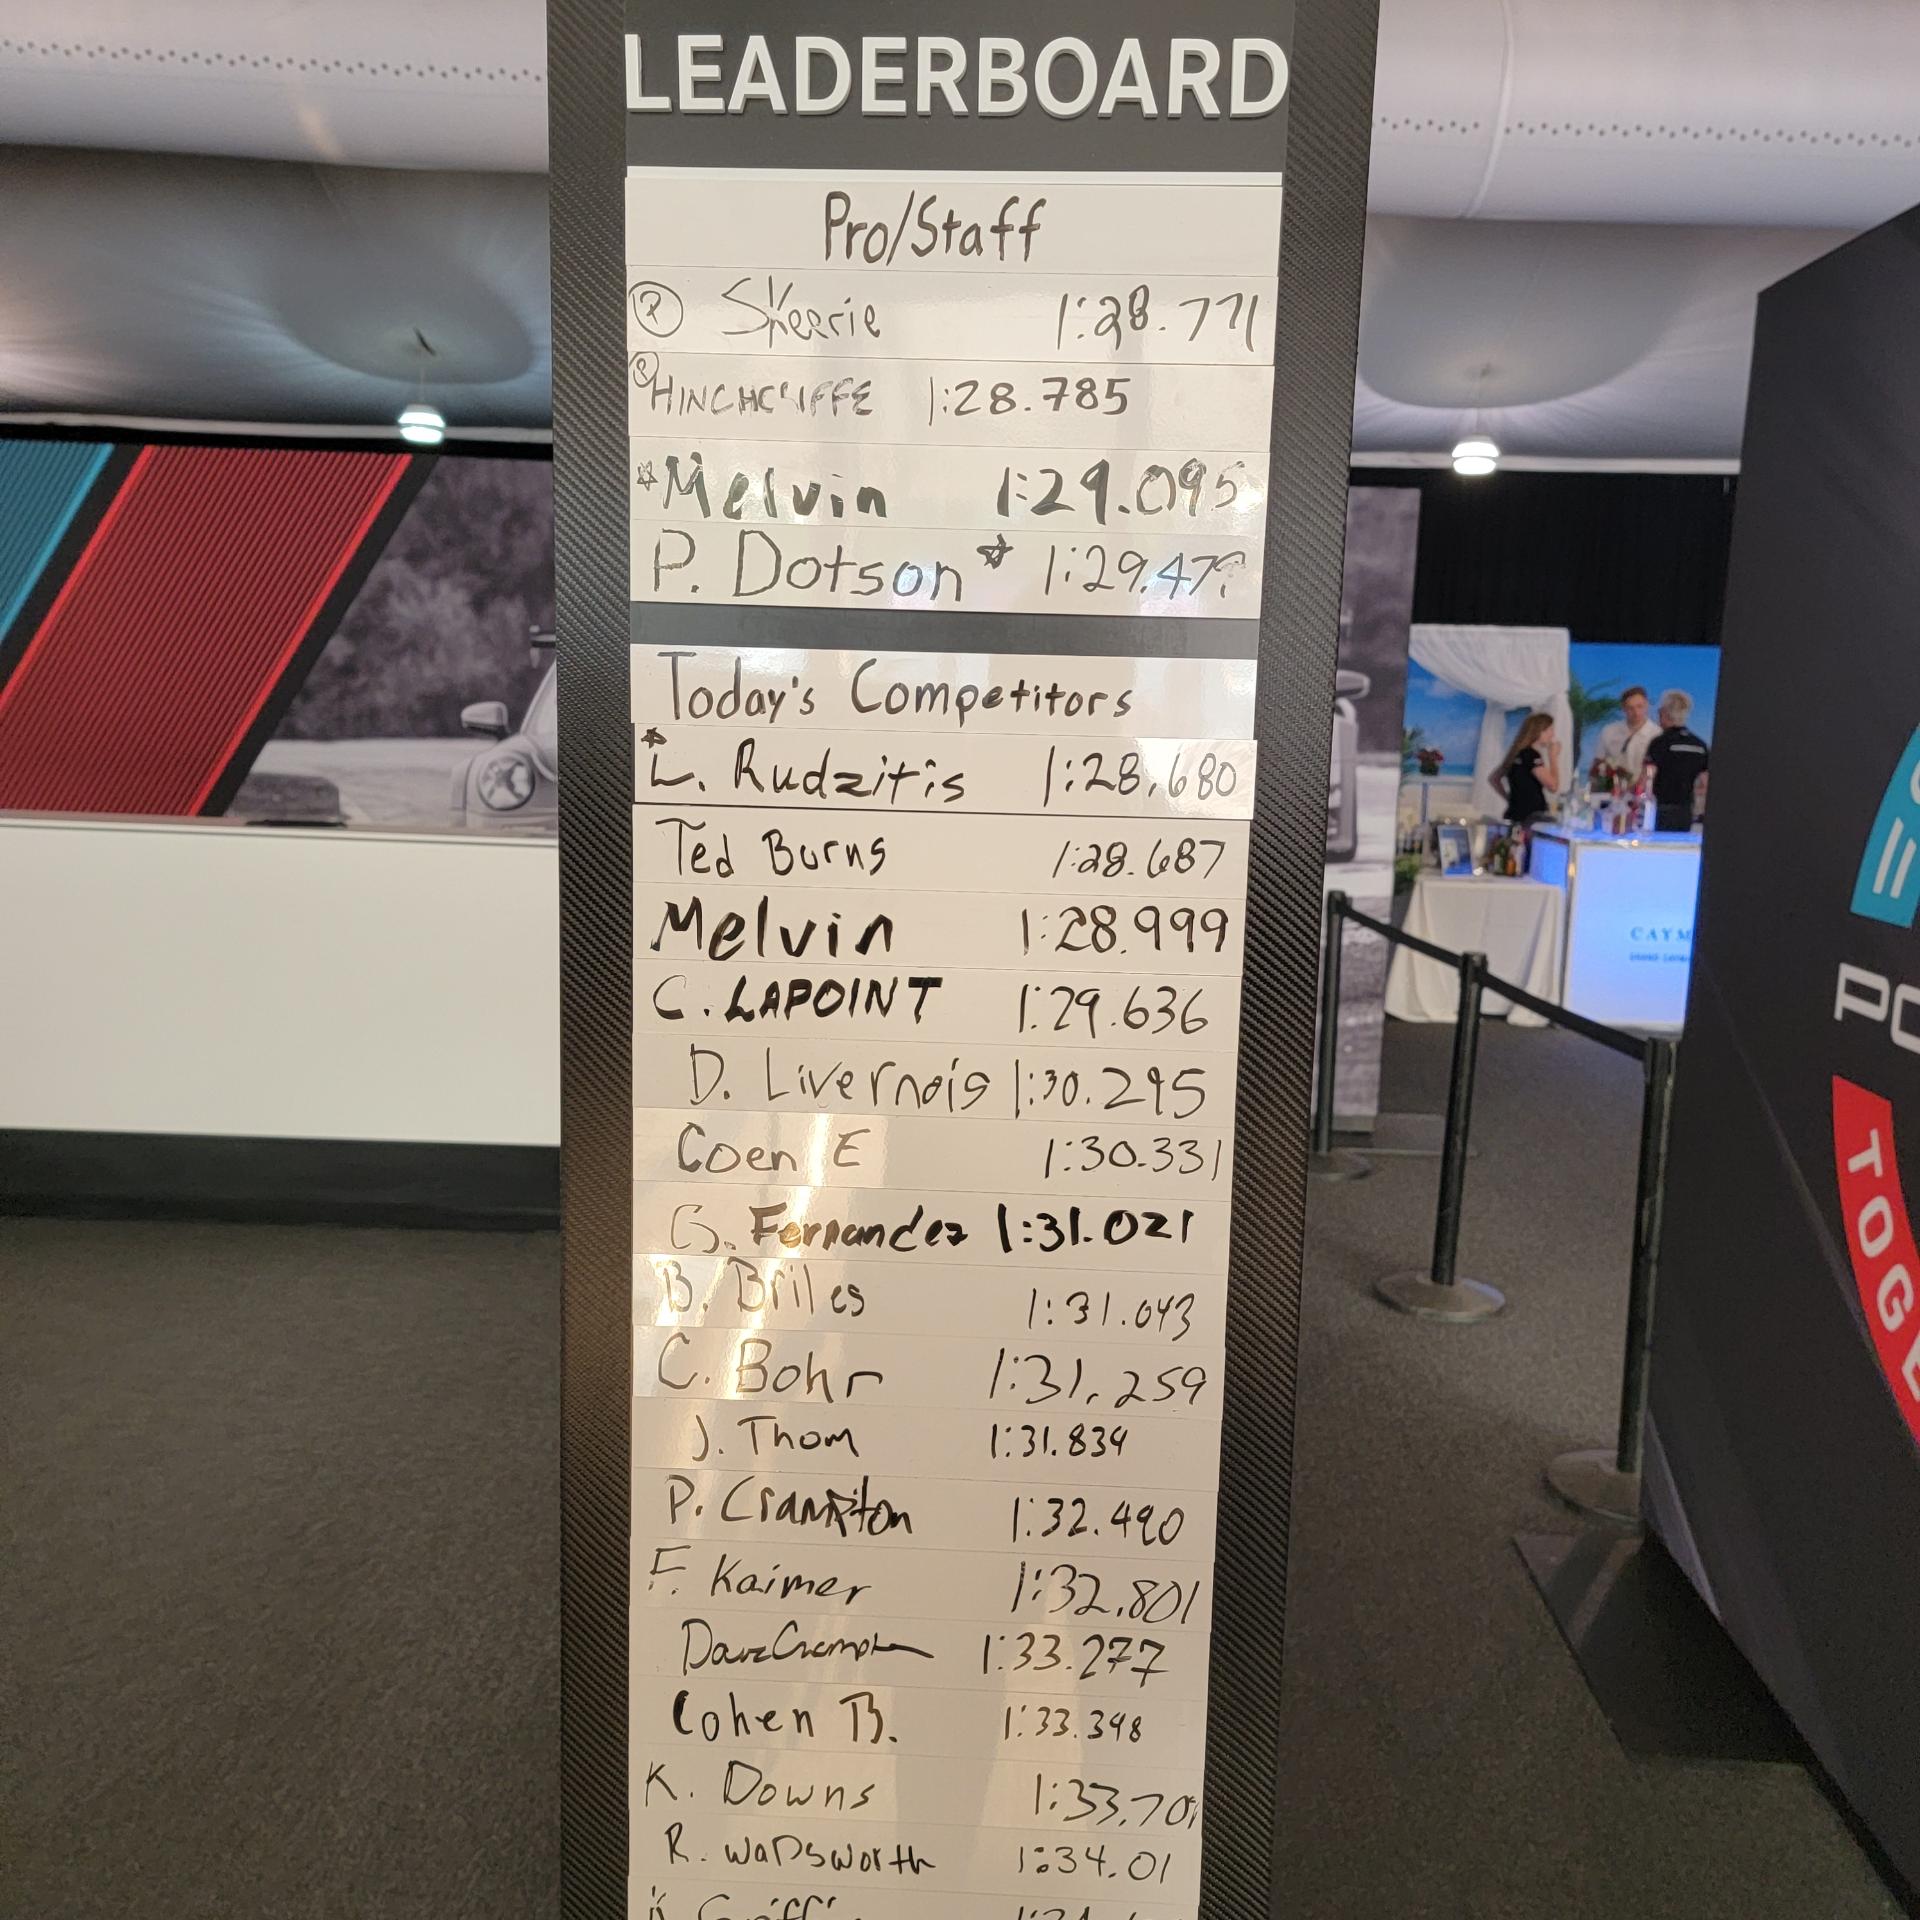 LEADERBOARD
Pro/Staff
Skeerie 1:28.771
HINCHCLIFFE 1:28.785
Melvin 1:29.095
P. Dotson 1:29.47
Today's Competitors
L. Rudzitis 1:28.680
Ted Burns 1:28.687
Melvin 1:28.999
C. LAPOINT 1:29.636
D. Livernois 1:30.295
Coen E 1:30.331
G. Fernandez 1:31.021
B. Briles 1:31.043
C. Bohr 1:31.259
J. Thom 1:31.834
P. Crampton 1:32.490
F. Kaimer 1:32.801
Dave Crampton 1:33.277
Cohen B. 1:33.398
K. Downs 1:33.701
R. WaDsworth 1:34.01
CAYM
PO
TOGE